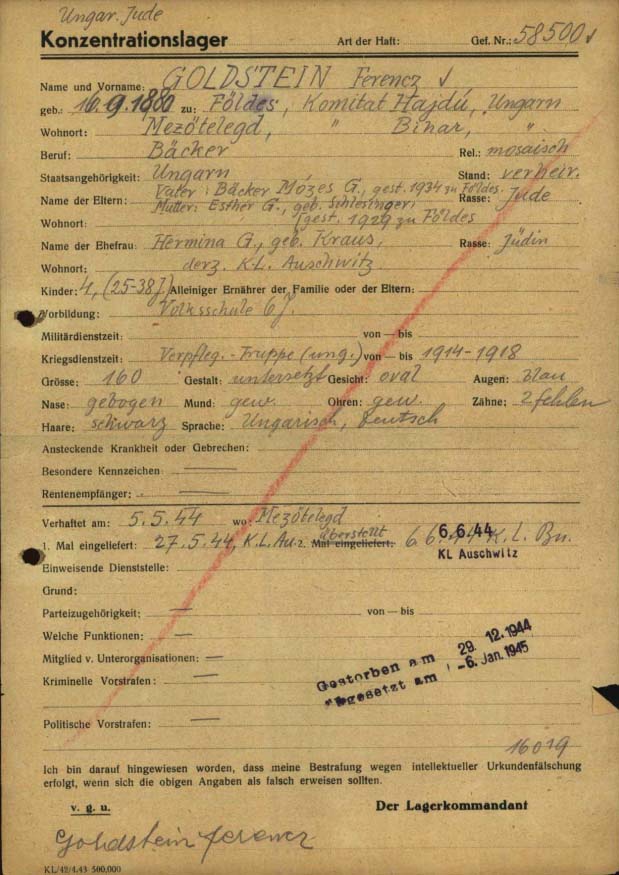 Ungar. Jude
Konzentrationslager Art der Haft: Gef. Nr.: 58500
Name und Vorname: GOLDSTEIN Ferencz
geb.: 16.9.1880 zu: Földes, Komitat Hajdú, Ungarn
Wohnort: Mezötelegd, " Bihar, "
Beruf: Bäcker Rel.: mosaisch
Staatsangehörigkeit: Ungarn Stand: verheir.
Vater: Bäcker Mózes G., gest. 1934 zu Földes.
Name der Eltern: Mutter: Esther G., geb. Schlesinger Rasse: Jude
Wohnort: gest. 1929 zu Földes
Name der Ehefrau: Hermina G., geb. Kraus, Rasse: Jüdin
Wohnort: derz. K.L. Auschwitz.
Kinder: 4, (25-38J) Alleiniger Ernährer der Familie oder der Eltern:
Vorbildung: Volksschule 6 J.
Militärdienstzeit: von — bis
Kriegsdienstzeit: Verpfleg.-Truppe (ung.) von — bis 1914-1918
Grösse: 160 Gestalt: untersetzt Gesicht: oval Augen: blau
Nase: gebogen Mund: gew. Ohren: gew. Zähne: 2 fehlen
Haare: schwarz Sprache: Ungarisch, Deutsch
Ansteckende Krankheit oder Gebrechen:
Besondere Kennzeichen: —
Rentenempfänger: —
Verhaftet am: 5.5.44 wo: Mezötelegd
1. Mal eingeliefert: 27.5.44, K.L. Au. 2. Mal eingeliefert: überstellt 6.6.44 K.L. Bu.
6.6.44
KL Auschwitz
Einweisende Dienststelle:
Grund:
Parteizugehörigkeit: — von — bis
Welche Funktionen: —
Mitglied v. Unterorganisationen: —
Kriminelle Vorstrafen: —
Gestorben am 29. 12. 1944
abgesetzt am -6. Jan. 1945
Politische Vorstrafen: —
Ich bin darauf hingewiesen worden, dass meine Bestrafung wegen intellektueller Urkundenfälschung
erfolgt, wenn sich die obigen Angaben als falsch erweisen sollten.
v. g. u. Der Lagerkommandant
Goldstein ferencz
KL/42/4.43 500.000